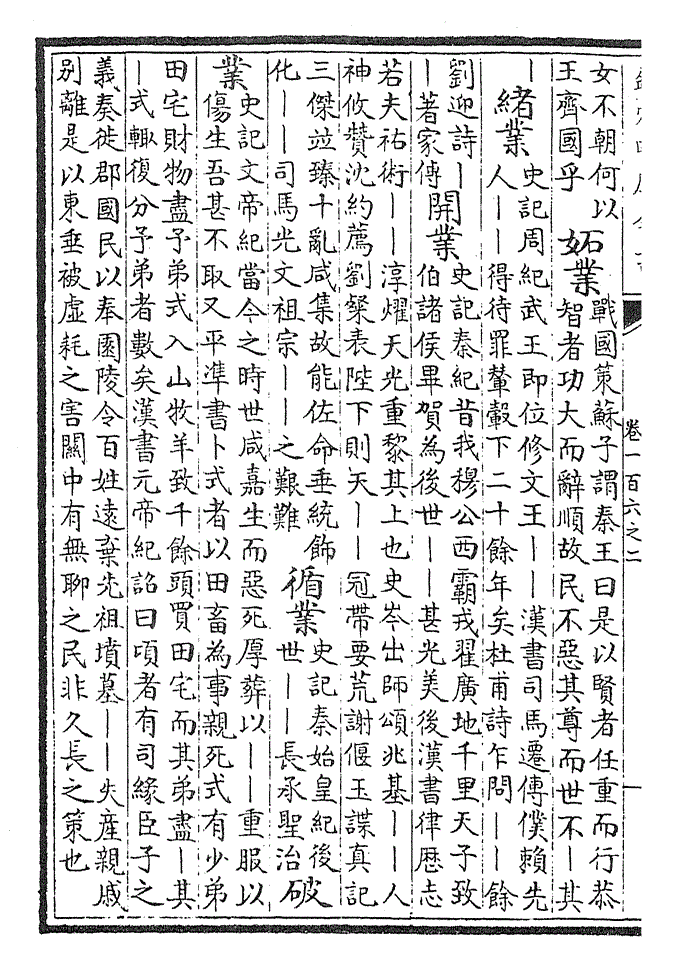 卷一百六之二
一
女不朝何以
王齊國乎
妬業
戰國策蘇子謂秦王曰是以賢者任重而行恭
智者功大而辭順故民不惡其尊而世不丨其
丨
緒業
史記周紀武王即位修文王丨丨漢書司馬遷傳僕賴先
人丨丨得待罪輦轂下二十餘年矣杜甫詩乍問丨丨餘
劉迎詩丨
丨著家傳
開業
史記秦紀昔我穆公西霸戎翟廣地千里天子致
伯諸侯畢賀為後世丨丨甚光美後漢書律歷志
若夫祐術丨丨淳燿天光重黎其上也史岑出師頌兆基丨丨人
神攸贊沈約薦劉粲表陛下則天丨丨冠帶要荒謝偃玉諜真記
三傑竝臻十亂咸集故能佐命垂統飾
化丨丨司馬光文祖宗丨丨之艱難
循業
史記秦始皇紀後
世丨丨長承聖治
破
業
史記文帝紀當今之時世咸嘉生而惡死厚葬以丨丨重服以
傷生吾甚不取又平準書卜式者以田畜為事親死式有少弟
田宅財物盡予弟式入山牧羊致千餘頭買田宅而其弟盡丨其
丨式輒復分予弟者數矣漢書元帝紀詔曰頃者有司緣臣子之
義奏徙郡國民以奉園陵令百姓遠棄先祖墳墓丨丨失產親戚
別離是以東垂被虛耗之害關中有無聊之民非久長之策也